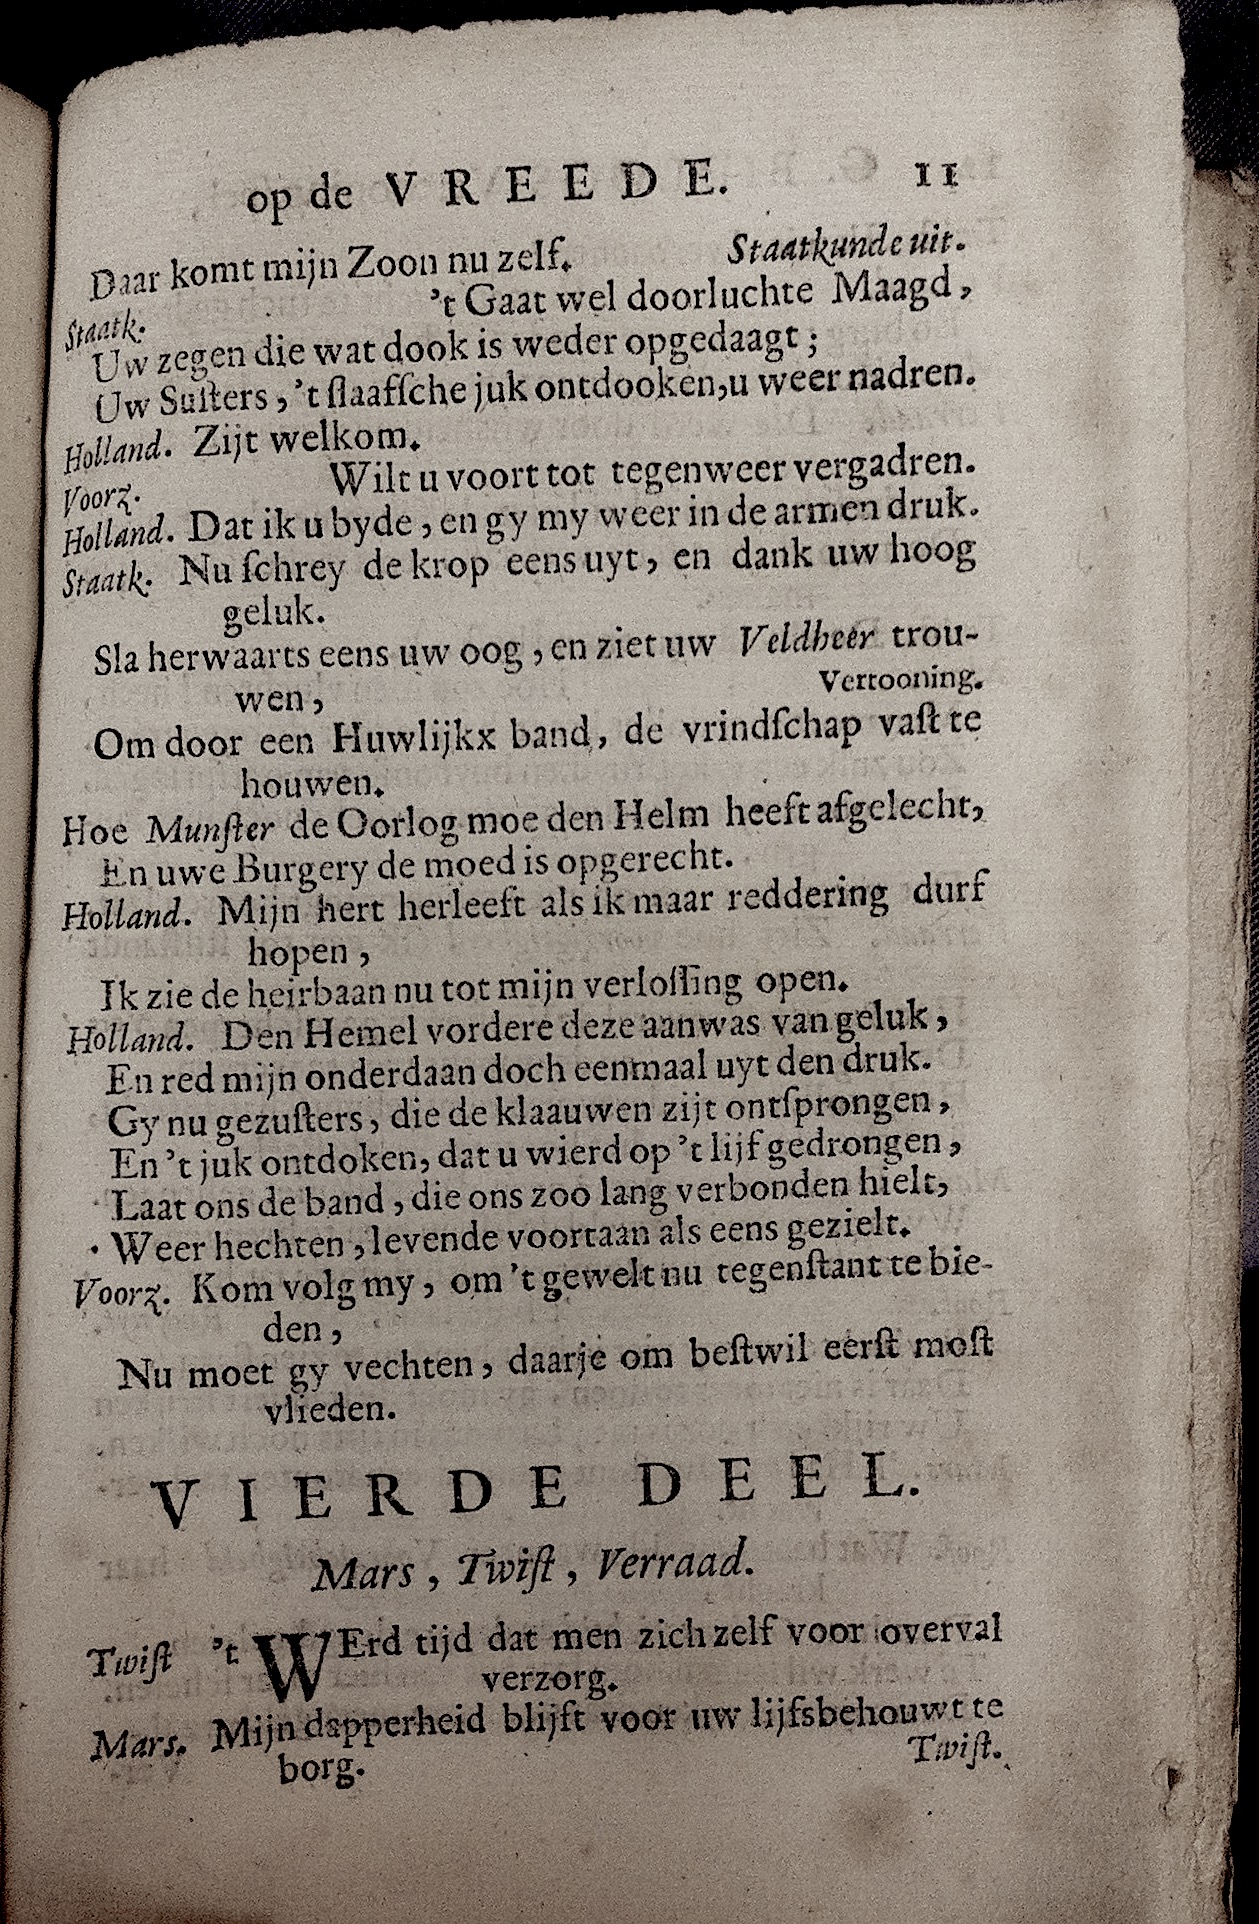 op de VREEDE. 11
Daar komt mijn Zoon nu zelf. Staatkunde uit.
Staatk. 't Gaat wel doorluchte Maagd,
Uw zegen die wat dook is weder opgedaagt;
Uw Suſters, 't ſlaafſche juk ontdooken, u weer nadren.
Holland. Zijt welkom.
Voorz. Wilt u voort tot tegenweer vergadren.
Holland. Dat ik u byde, en gy my weer in de armen druk.
Staatk. Nu ſchrey de krop eens uyt, en dank uw hoog
geluk.
Sla herwaarts eens uw oog, en ziet uw Veldheer trou-
wen, Vertooning.
Om door een Huwlijkx band, de vrindſchap vaſt te
houwen.
Hoe Munſter de Oorlog moe den Helm heeft afgelecht,
En uwe Burgery de moed is opgerecht.
Holland. Mijn hert herleeft als ik maar reddering durf
hopen,
Ik zie de heirbaan nu tot mijn verloſſing open.
Holland. Den Hemel vordere deze aanwas van geluk,
En red mijn onderdaan doch eenmaal uyt den druk.
Gy nu gezuſters, die de klaauwen zijt ontſprongen,
En 't juk ontdoken, dat u wierd op 't lijf gedrongen,
Laat ons de band, die ons zoo lang verbonden hielt,
Weer hechten, levende voortaan als eens gezielt.
Voorz. Kom volg my, om 't gewelt nu tegenſtant te bie-
den,
Nu moet gy vechten, daarje om beſtwil eerſt moſt
vlieden.
VIERDE DEEL.
Mars, Twiſt, Verraad.
Twiſt 't WErd tijd dat men zich zelf voor overval
verzorg.
Mars. Mijn dapperheid blijft voor uw lijfsbehouwt te
borg. Twiſt.